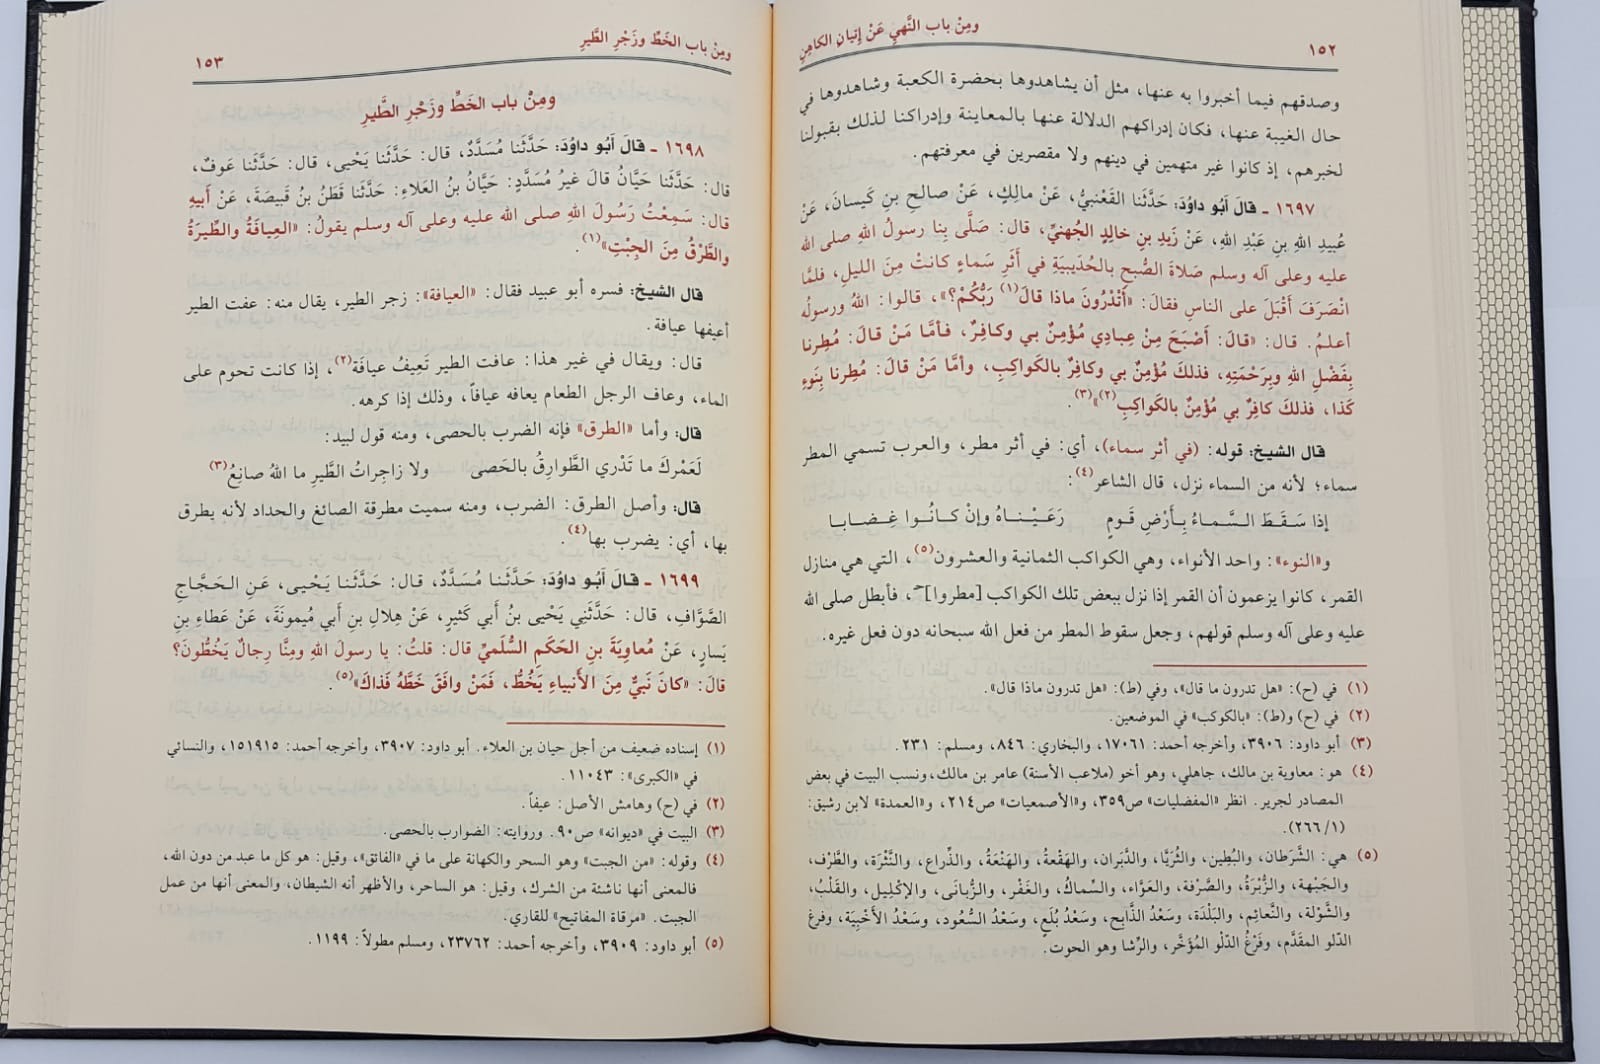 ١٥٢
ومِنْ باب النَّهيِ عَنْ إتيانِ الكاهِنِ
وصدقهم فيما أخبروا به عنها، مثل أن يشاهدوها بحضرة الكعبة وشاهدوها في
حال الغيبة عنها، فكان إدراكهم الدلالة عنها بالمعاينة وإدراكنا لذلك بقبولنا
لخبرهم، إذ كانوا غير متهمين في دينهم ولا مقصرين في معرفتهم.
١٦٩٧ ـ قالَ أَبُو داوُدَ: حَدَّثَنا القَعْنبيُّ، عَنْ مالِكٍ، عَنْ صالحِ بنِ كَيسانَ، عَنْ
عُبيدِ اللهِ بنِ عَبْدِ اللهِ، عَنْ زَيدِ بنِ خالِدٍ الجُهنيِّ، قال: صَلَّى بِنا رسولُ اللهِ صلى الله
عليه وعلى آله وسلم صَلاةَ الصُّبحِ بالحُدَيبيَةِ في أَثَرِ سَماءٍ كانتْ مِنَ الليلِ، فلمَّا
انْصَرَفَ أَقْبَلَ على الناسِ فقالَ: «أَتَدْرُونَ ماذا قالَ(١) رَبُّكُمْ؟»، قالوا: اللهُ ورسولُه
أعلمُ. قال: «قالَ: أَصْبَحَ مِنْ عِبادِي مُؤْمِنٌ بي وكافِرٌ، فأَمَّا مَنْ قالَ: مُطِرنا
بِفَضْلِ اللهِ وبِرَحْمَتِهِ، فذلكَ مُؤْمِنٌ بي وكافِرٌ بالكَواكِبِ، وأمَّا مَنْ قالَ: مُطِرنا بِنَوءِ
كَذا، فذلكَ كافِرٌ بي مُؤْمِنٌ بالكَواكِبِ(٢)»(٣).
قال الشيخ: قوله: (في أثر سماء)، أي: في أثر مطر، والعرب تسمي المطر
سماء؛ لأنه من السماء نزل، قال الشاعر(٤):
إذا سَقَطَ السَّماءُ بِأَرْضِ قَومٍ رَعَيْناهُ وإنْ كانُوا غِضابا
و«النوء»: واحد الأنواء، وهي الكواكب الثمانية والعشرون(٥)، التي هي منازل
القمر، كانوا يزعمون أن القمر إذا نزل ببعض تلك الكواكب [مطروا]، فأبطل صلى الله
عليه وعلى آله وسلم قولهم، وجعل سقوط المطر من فعل الله سبحانه دون فعل غيره.
(١) في (ح): «هل تدرون ما قال»، وفي (ط): «هل تدرون ماذا قال».
(٢) في (ح) و(ط): «بالكوكب» في الموضعين.
(٣) أبو داود: ٣٩٠٦، وأخرجه أحمد: ١٧٠٦١، والبخاري: ٨٤٦، ومسلم: ٢٣١.
(٤) هو: معاوية بن مالك، جاهلي، وهو أخو (ملاعب الأسنة) عامر بن مالك، ونسب البيت في بعض
المصادر لجرير. انظر «المفضليات» ص٣٥٩، و«الأصمعيات» ص٢١٤، و«العمدة» لابن رشيق:
(١/ ٢٦٦).
(٥) هي: الشَّرَطان، والبُطين، والثُريَّا، والدَّبَران، والهَقْعةُ، والهَنْعَةُ، والذِّراع، والنَّثْرَة، والطَّرْف،
والجَبْهة، والزُّبْرَةُ، والصَّرْفة، والعَوَّاء، والسِّماكُ، والغَفْر، والزُّبانَى، والإكْلِيل، والقَلْبُ،
والشَّوْلة، والنَّعائِم، والبَلْدَة، وسَعْدُ الذَّابح، وسَعْدُ بُلَعَ، وسَعْدُ السُّعود، وسَعْدُ الأَخْبِيَة، وفرغُ
الدّلو المقدَّم، وفَرْغُ الدّلْو المُؤَخَّر، والرِّشا وهو الحوت.
ومِنْ باب الخَطِّ وزَجْرِ الطَّيرِ
١٥٣
ومِنْ باب الخَطِّ وزَجْرِ الطَّيرِ
١٦٩٨ ـ قالَ أَبُو داوُدَ: حَدَّثَنا مُسَدَّدٌ، قال: حَدَّثَنا يَحْيى، قال: حَدَّثَنا عَوفٌ،
قال: حَدَّثَنا حَيَّانُ قالَ غيرُ مُسَدَّدٍ: حَيَّانُ بنُ العَلاءِ: حَدَّثَنا قَطَنُ بنُ قَبيصَةَ، عَنْ أَبيهِ
قال: سَمِعْتُ رَسُولَ اللهِ صلى الله عليه وعلى آله وسلم يقولُ: «العِيافَةُ والطِّيَرَةُ
والطَّرْقُ مِنَ الجِبْتِ»(١).
قال الشيخ: فسره أبو عبيد فقال: «العيافة»: زجر الطير، يقال منه: عفت الطير
أعيفها عيافة.
قال: ويقال في غير هذا: عافت الطير تَعِيفُ عيافَة(٢)، إذا كانت تحوم على
الماء، وعاف الرجل الطعام يعافه عيافاً، وذلك إذا كرهه.
قال: وأما «الطرق» فإنه الضرب بالحصى، ومنه قول لبيد:
لَعَمْركَ ما تَدْري الطَّوارِقُ بالحَصى ولا زاجِراتُ الطَّيرِ ما اللهُ صانِعُ(٣)
قال: وأصل الطرق: الضرب، ومنه سميت مطرقة الصائغ والحداد لأنه يطرق
بها، أي: يضرب بها(٤).
١٦٩٩ ـ قالَ أَبُو داوُدَ: حَدَّثَنا مُسَدَّدٌ، قال: حَدَّثَنا يَحْيى، عَنِ الحَجَّاجِ
الصَّوَّافِ، قال: حَدَّثَنِي يَحْيى بنُ أَبي كَثيرٍ، عَنْ هِلالِ بنِ أَبي مُيمونَةَ، عَنْ عَطاءِ بنِ
يَسارٍ، عَنْ مُعاوِيَةَ بنِ الحَكَمِ السُّلَميِّ قال: قلتُ: يا رسولَ اللهِ ومِنَّا رِجالٌ يَخُطُّونَ؟
قالَ: «كانَ نَبيٌّ مِنَ الأَنبياءِ يَخُطُّ، فَمَنْ وافَقَ خَطَّهُ فَذاكَ»(٥).
(١) إسناده ضعيف من أجل حيان بن العلاء. أبو داود: ٣٩٠٧، وأخرجه أحمد: ١٥١٩١٥، والنسائي
في «الكبرى»: ١١٠٤٣.
(٢) في (ح) وهامش الأصل: عيفاً.
(٣) البيت في «ديوانه» ص٩٠. وروايته: الضوارب بالحصى.
(٤) وقوله: «من الجبت» وهو السحر والكهانة على ما في «الفائق»، وقيل: هو كل ما عبد من دون الله،
فالمعنى أنها ناشئة من الشرك، وقيل: هو الساحر، والأظهر أنه الشيطان، والمعنى أنها من عمل
الجبت. «مرقاة المفاتيح» للقاري.
(٥) أبو داود: ٣٩٠٩، وأخرجه أحمد: ٢٣٧٦٢، ومسلم مطولاً: ١١٩٩.